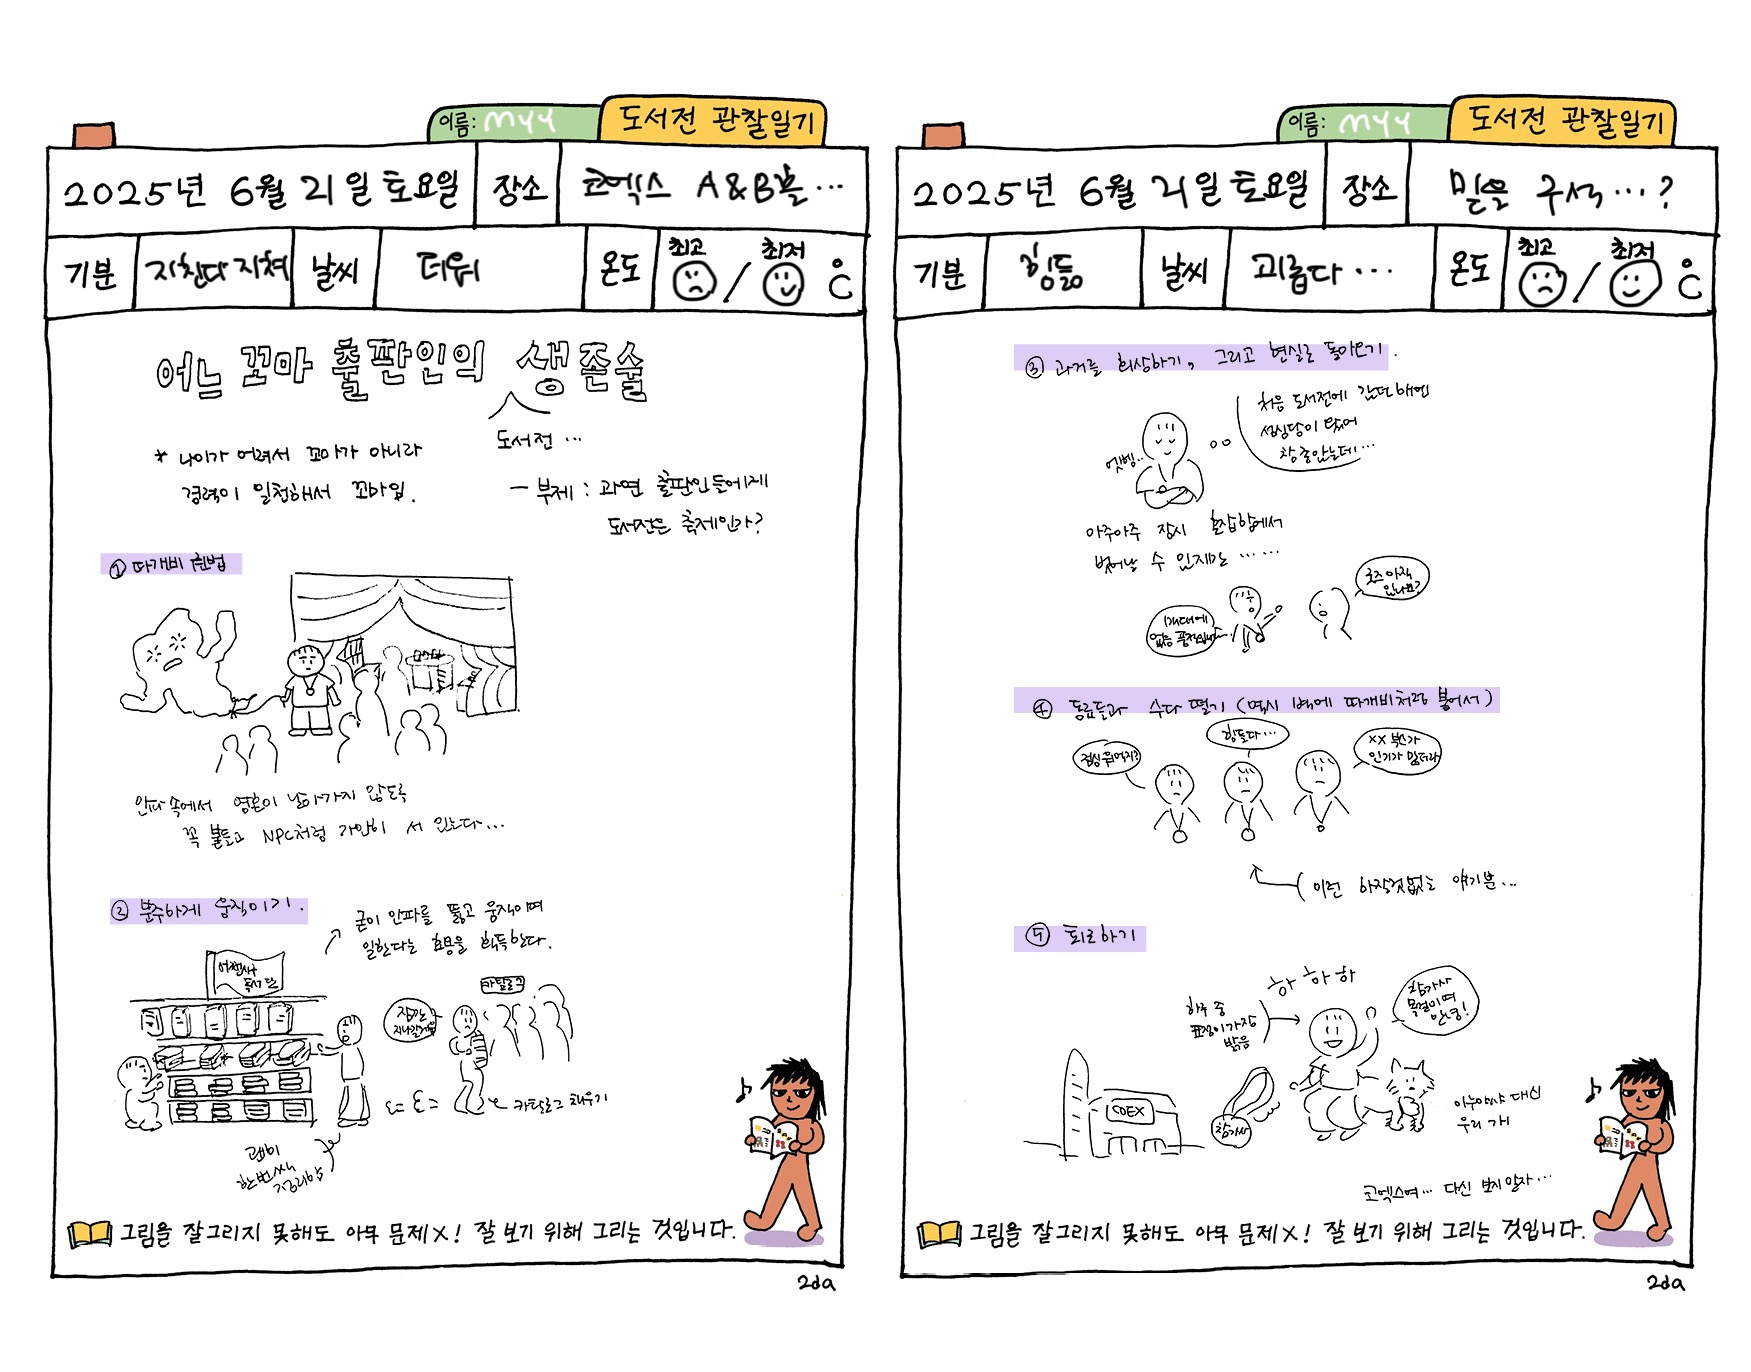 이름: myy
도서전 관찰일기
2025년 6월 21일 토요일
장소
코엑스 A&B홀...
기분
지친다 지쳐
날씨
더워
온도
최고
/
최저
℃
어느 꼬마 출판인의 생존술
도서전 ...
* 나이가 어려서 꼬마가 아니라
경력이 일천해서 꼬마임.
- 부제 : 과연 출판인들에게
도서전은 축제인가?
① 따개비 권법
인파 속에서 영혼이 날아가지 않도록
꼭 붙들고 NPC처럼 가만히 서 있는다...
② 분주하게 움직이기.
굳이 인파를 뚫고 움직이며
일한다는 효용을 획득한다.
독서단
카탈로그
잠깐
지나갈게요
카탈로그 채우기
괜히
한번씩
정리함
그림을 잘그리지 못해도 아무 문제X! 잘 보기 위해 그리는 것입니다.
2da
이름: myy
도서전 관찰일기
2025년 6월 21일 토요일
장소
믿을 구석...?
기분
힘듦
날씨
괴롭다...
온도
최고
/
최저
℃
③ 과거를 회상하기, 그리고 현실로 돌아오기.
처음 도서전에 갔던 해엔
성심당이 왔어
참 좋았는데...
엣헴..
아주아주 잠시 혼잡함에서
벗어날 수 있지만......
굿즈 아직
있나요?
없는 품절입니다
④ 동료들과 수다 떨기 (역시 벽에 따개비처럼 붙어서)
점심 뭐먹지?
힘들다...
XX 부스가
인기가 많더라
이런 하잘것없는 얘기뿐...
⑤ 퇴근하기
하 하 하
하루 중
표정이 가장
밝음
참가사
목걸이여
안녕!
COEX
참가사
이누야샤 대신
우리 개
코엑스여... 다신 보지 말자...
그림을 잘그리지 못해도 아무 문제X! 잘 보기 위해 그리는 것입니다.
2da